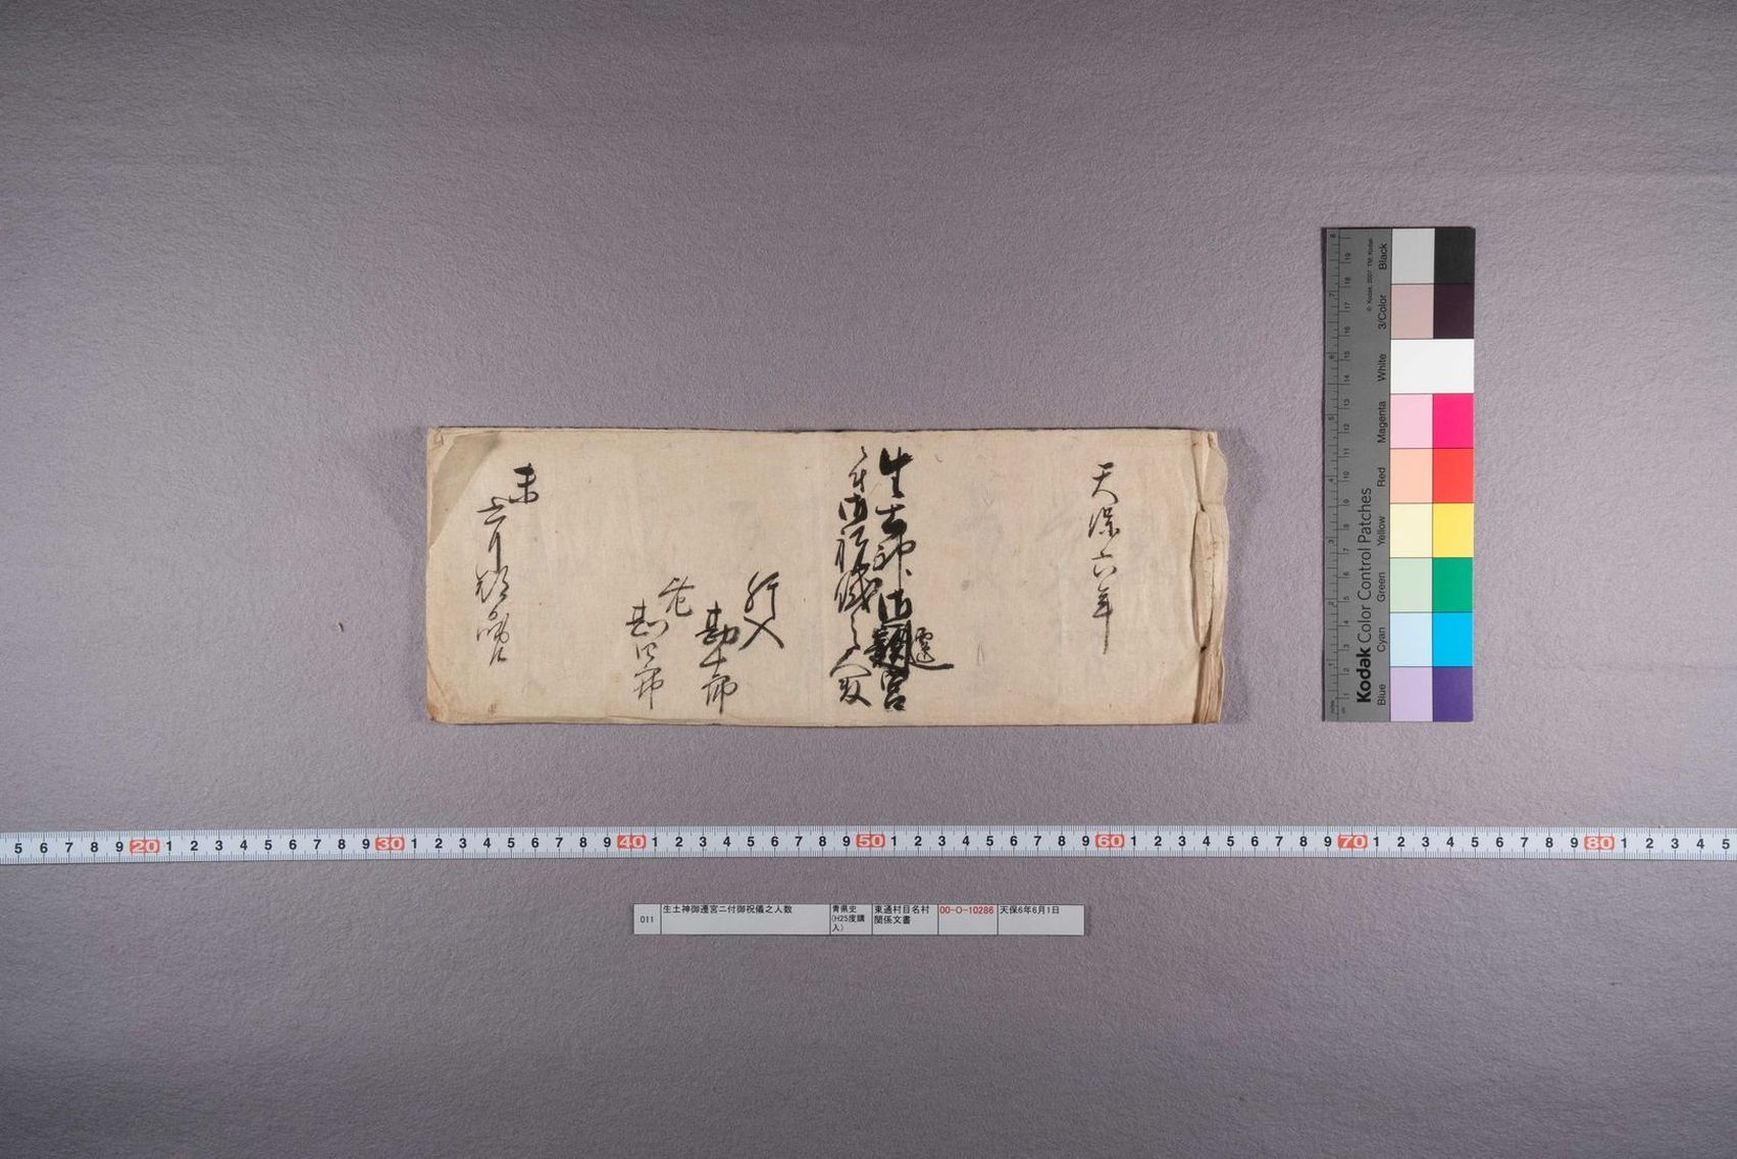 天保六年
生土神御遷宮
ニ付御祝儀之人数
行人
勘十郎
勘四郎
未
六月朔日
5 6 7 8 9 20 1 2 3 4 5 6 7 8 9 30 1 2 3 4 5 6 7 8 9 40 1 2 3 4 5 6 7 8 9 50 1 2 3 4 5 6 7 8 9 60 1 2 3 4 5 6 7 8 9 70 1 2 3 4 5 6 7 8 9 80 1 2 3 4 5
011
生土神御遷宮ニ付御祝儀之人数
青県史
(H25度購
入)
東通村目名村
関係文書
00-O-10286
天保6年6月1日
Kodak Color Control Patches
© Kodak, 2007 TM: Kodak
Blue Cyan Green Yellow Red Magenta White 3/Color Black